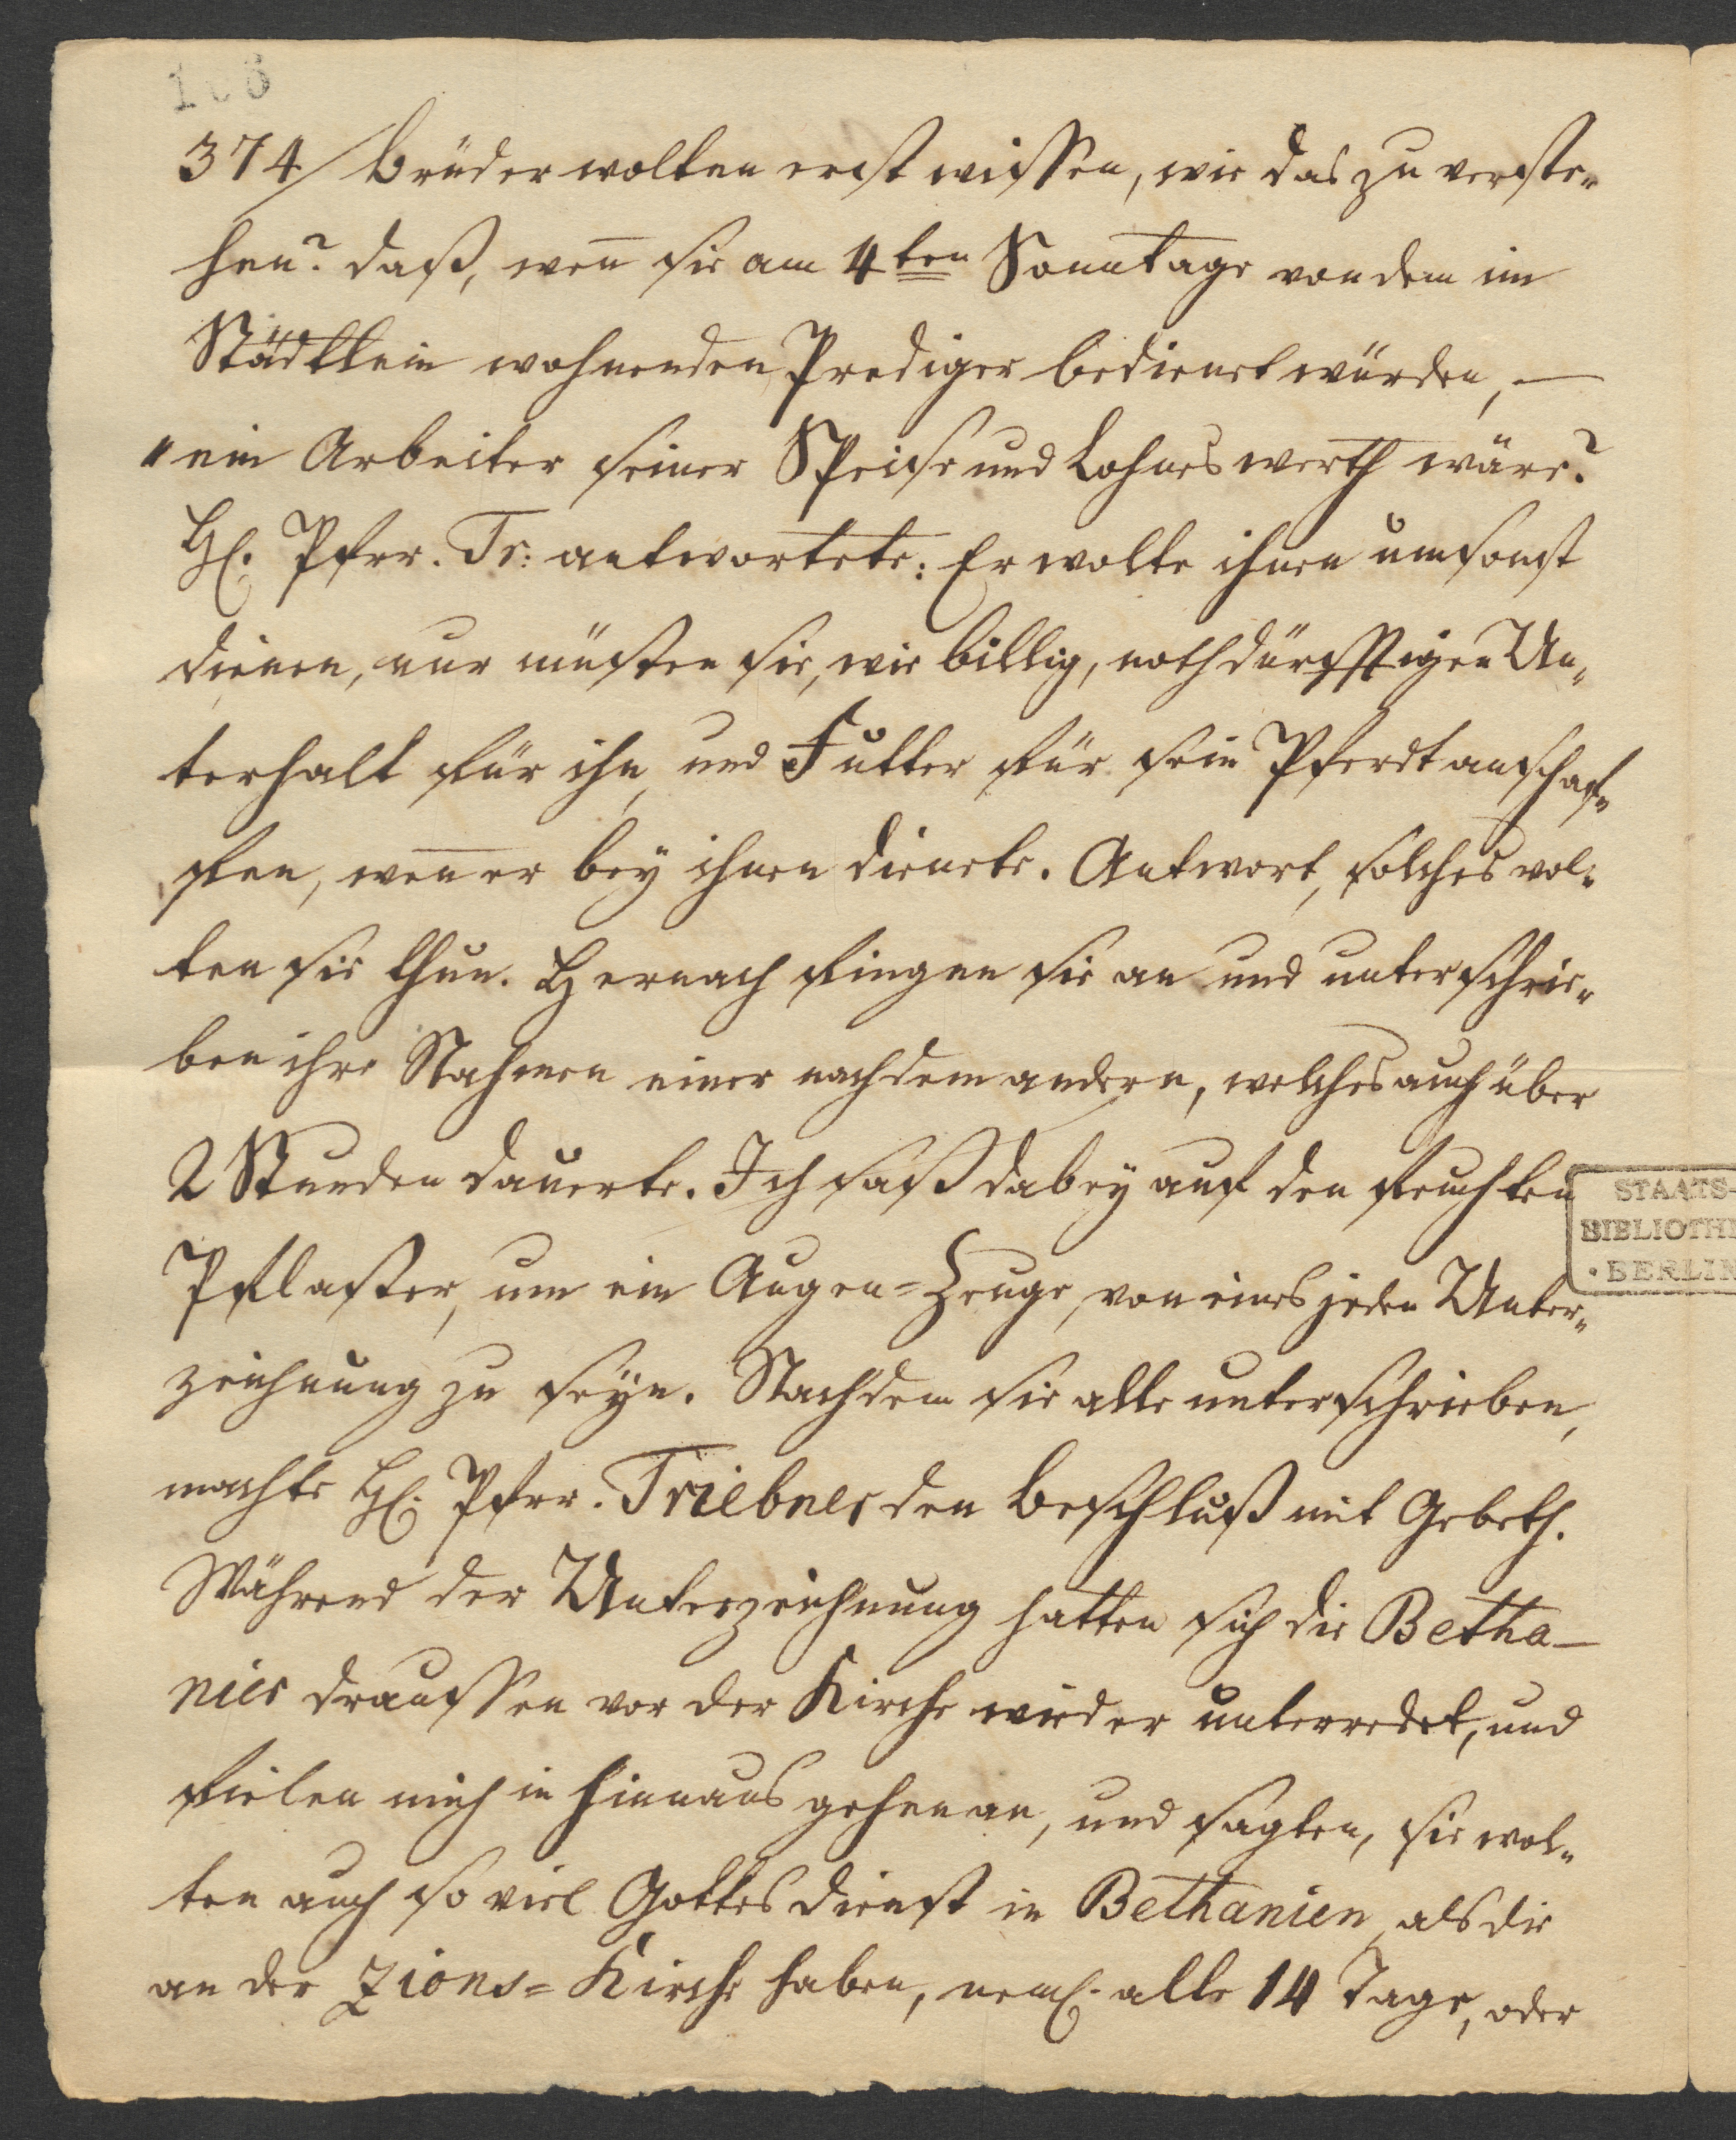 106
374/ Brüder wolten erst wissen, wie das zu verste„
hen? daß, wen̄ sie am 4ten Sonntage von dem im
Städtlein wohnenden Prediger bedienet würden, —
"ein Arbeiter seiner Speise und Lohnes werth wäre?
H. Pfrr. Tr: antwortete: Er wolte ihnen umsonst
dienen, nur müsten sie, wie billig, nothdürfftigen Un„
terhalt für ihn, und Futter für sein Pferdt anschaf„
fen, wen̄ er bey ihnen dienete. Antwort, solches wol„
ten sie thun. Hernach fingen sie an und unterschrie„
ben ihre Nahmen einer nach dem andern, welches auch über
2 Stunden dauerte. Ich saß dabey auf den feuchten
Pflaster, um ein Augen=Zeuge, von eines jeden Unter„
zeichnung zu seyn. Nachdem sie alle unterschrieben,
machte H. Pfrr. Triebner den Beschluß mit Gebeth.
Während der Unterzeichnung hatten sich die Betha—
nier draussen vor der Kirche wieder unterredet, und
fielen mich in hinnaus gehen an, und sagten, sie wol„
ten auch so viel Gottesdienst in Bethanien, als die
an der Zions=Kirche haben, neml. alle 14 Tage, oder
STAATS-
BIBLIOTHE
BERLIN